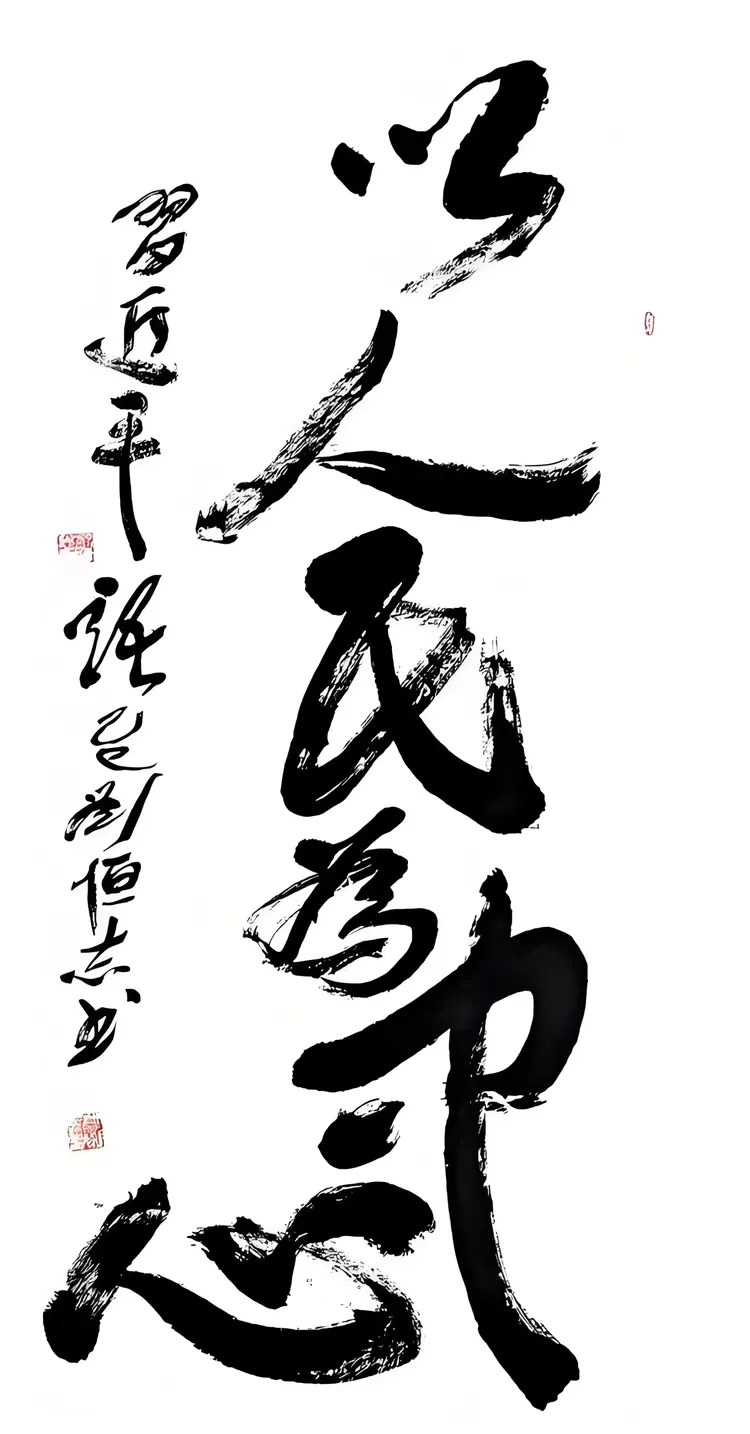 以人民為中心
習近平語乙巳劉恒志书